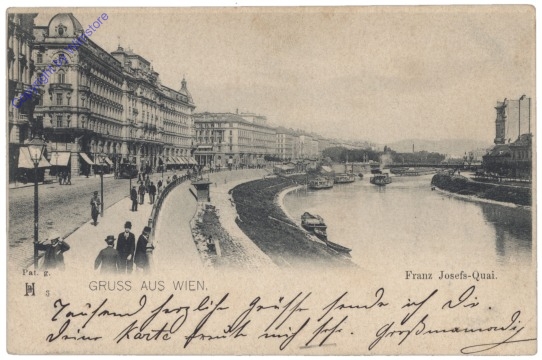 Pat. g.
3
GRUSS AUS WIEN.
Franz Josefs-Quai.
Tausend herzliche Grüße sende ich Dir.
Deine Karte freut mich sehr. Großmama